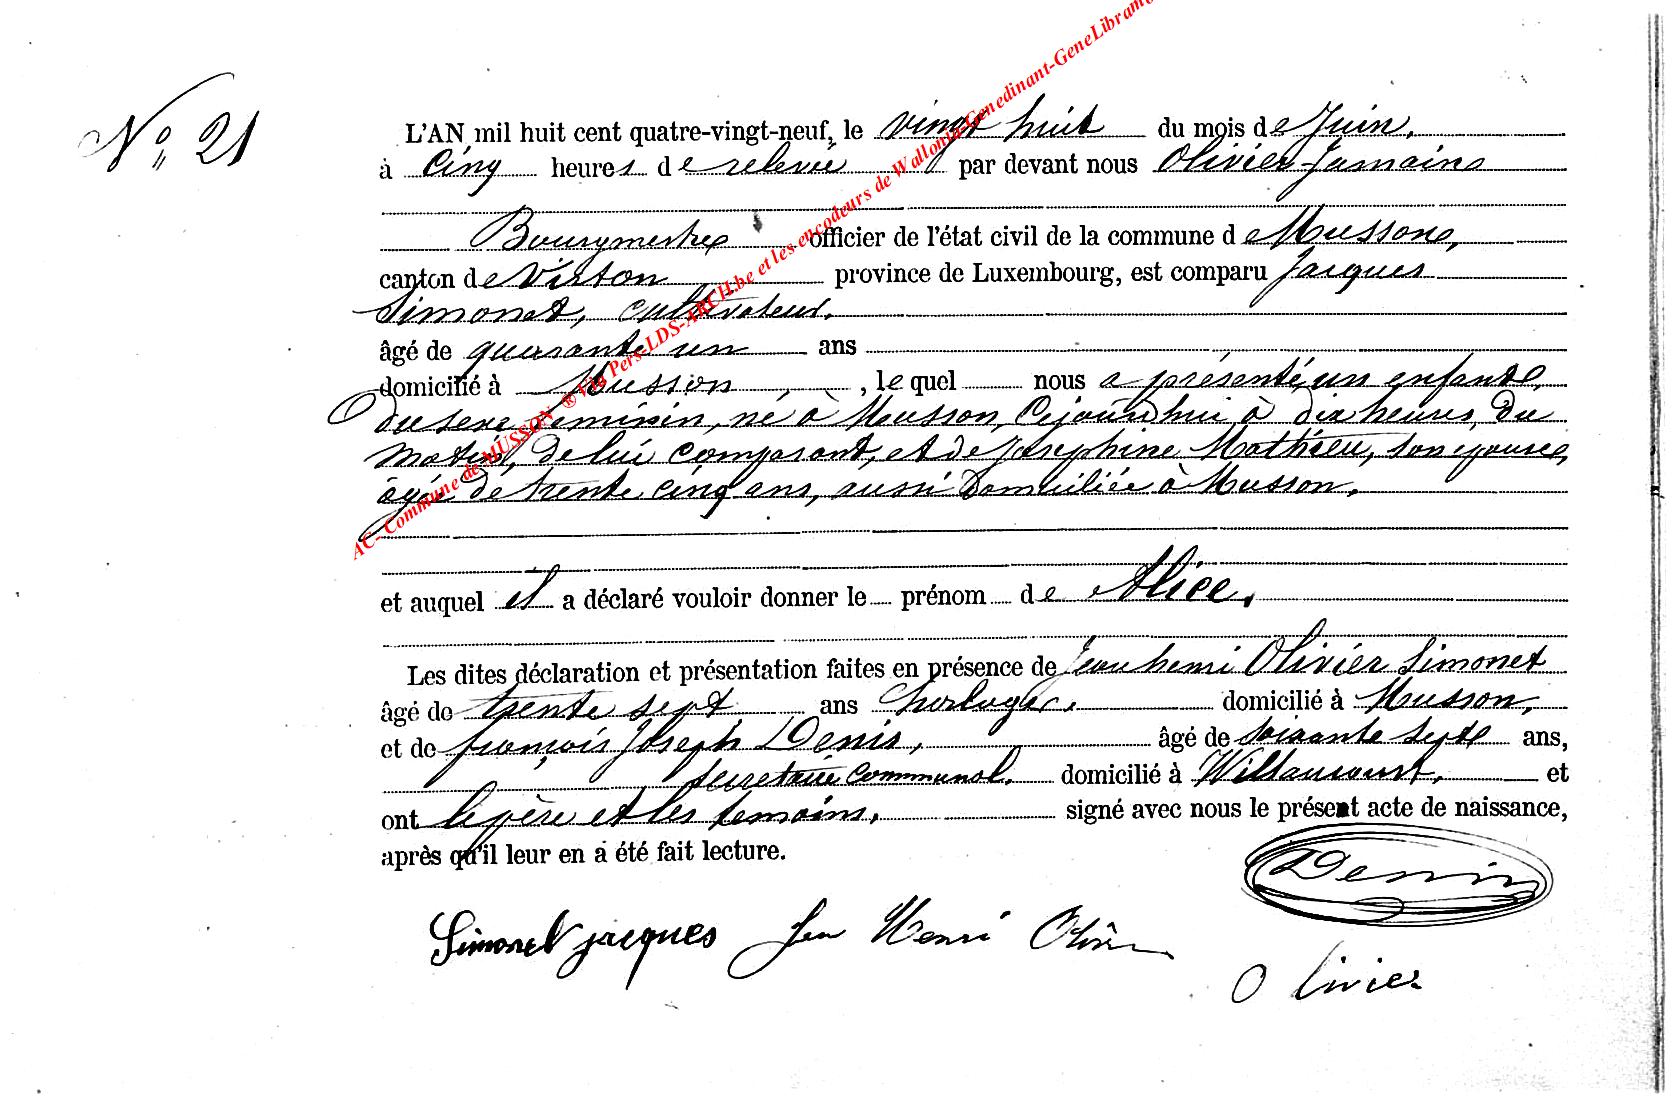 N° 21
L'AN mil huit cent quatre-vingt-neuf, le vingt huit du mois de Juin,
à cinq heures de relevée par devant nous Olivier Jamaine
Bourgmestre officier de l'état civil de la commune de Musson,
canton de Virton province de Luxembourg, est comparu Jacques
Simonet, cultivateur.
âgé de quarante un ans
domicilié à Musson, , lequel nous a présenté, un enfant,
du sexe feminin, né à Musson, Cejourdhui à dix heures, du
matin, de lui comparant, et de Josephine Mathieu, son épouse,
âgée de trente cinq ans, aussi domiciliée à Musson.
et auquel il a déclaré vouloir donner le prénom de Alice.
Les dites déclaration et présentation faites en présence de Jean henri Olivier Simonet
âgé de trente sept ans horloger. domicilié à Musson,
et de françois Joseph Denis, âgé de soixante sept ans,
secretaire communal. domicilié à Willancourt, et
ont le père et les temoins, signé avec nous le présent acte de naissance,
après qu'il leur en a été fait lecture.
Denis
Simonet jacques Jean Henri Olivier
Olivier
AC- Commune de MUSSON ® Via Pers-LDS-ARCH.be et les encodeurs de Wallonia-Genedinant-GeneLibramo